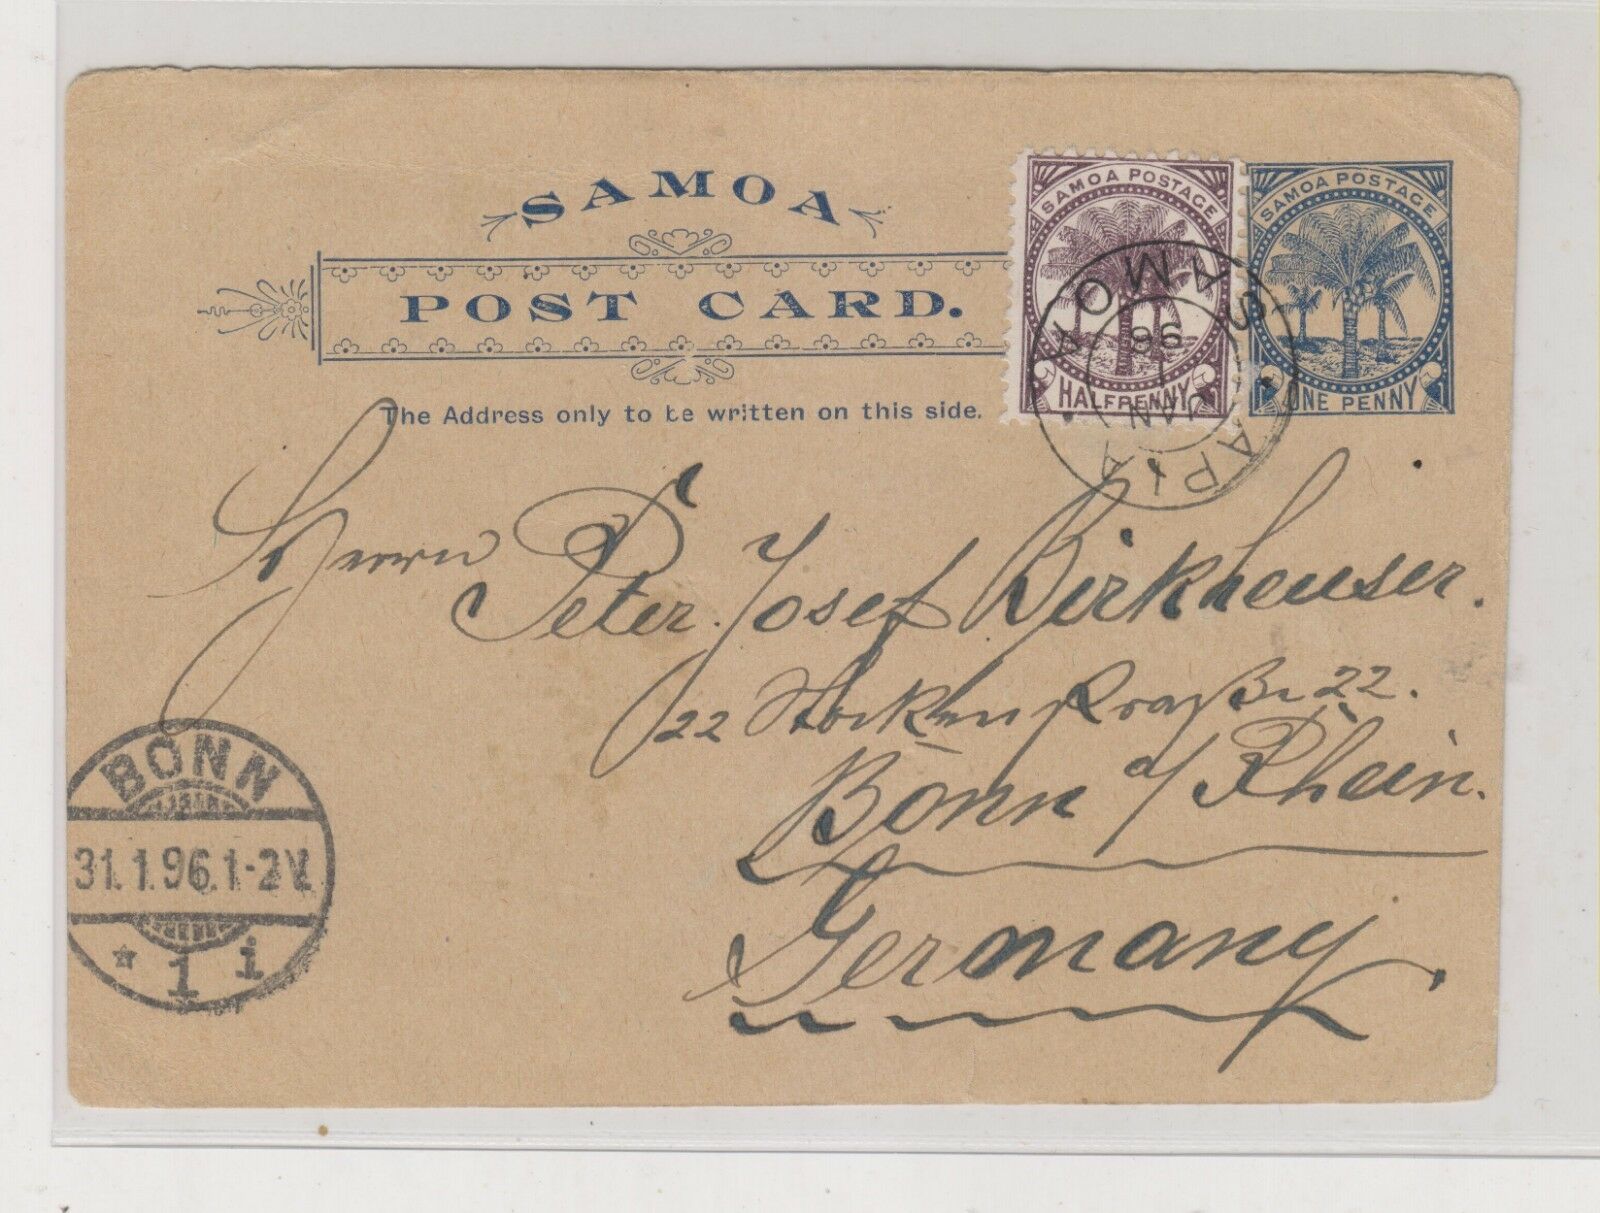 SAMOA
POST CARD.
The Address only to be written on this side.
SAMOA POSTAGE
HALFPENNY
SAMOA POSTAGE
ONE PENNY
SAMOA
96
JAN
APIA
Herrn Peter Josef Birkheuser.
22 Stockenstraße 22.
Bonn a/Rhein.
Germany.
BONN
31.1.96.1-2N.
* 1 i